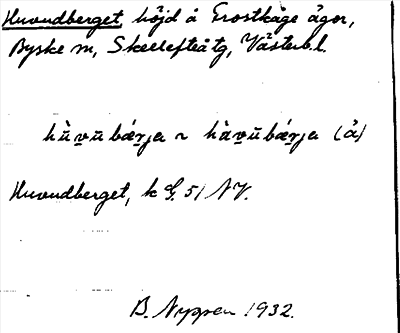 Huvudberget höjd å Frostkåge ägor,
Byske sn, Skellefteå tg, Västerb.l.
hù̀vŭbǽrja ~ hàvŭbǽrja (å)
Huvudberget, k G. 51 NV.
B. Nygren 1932.